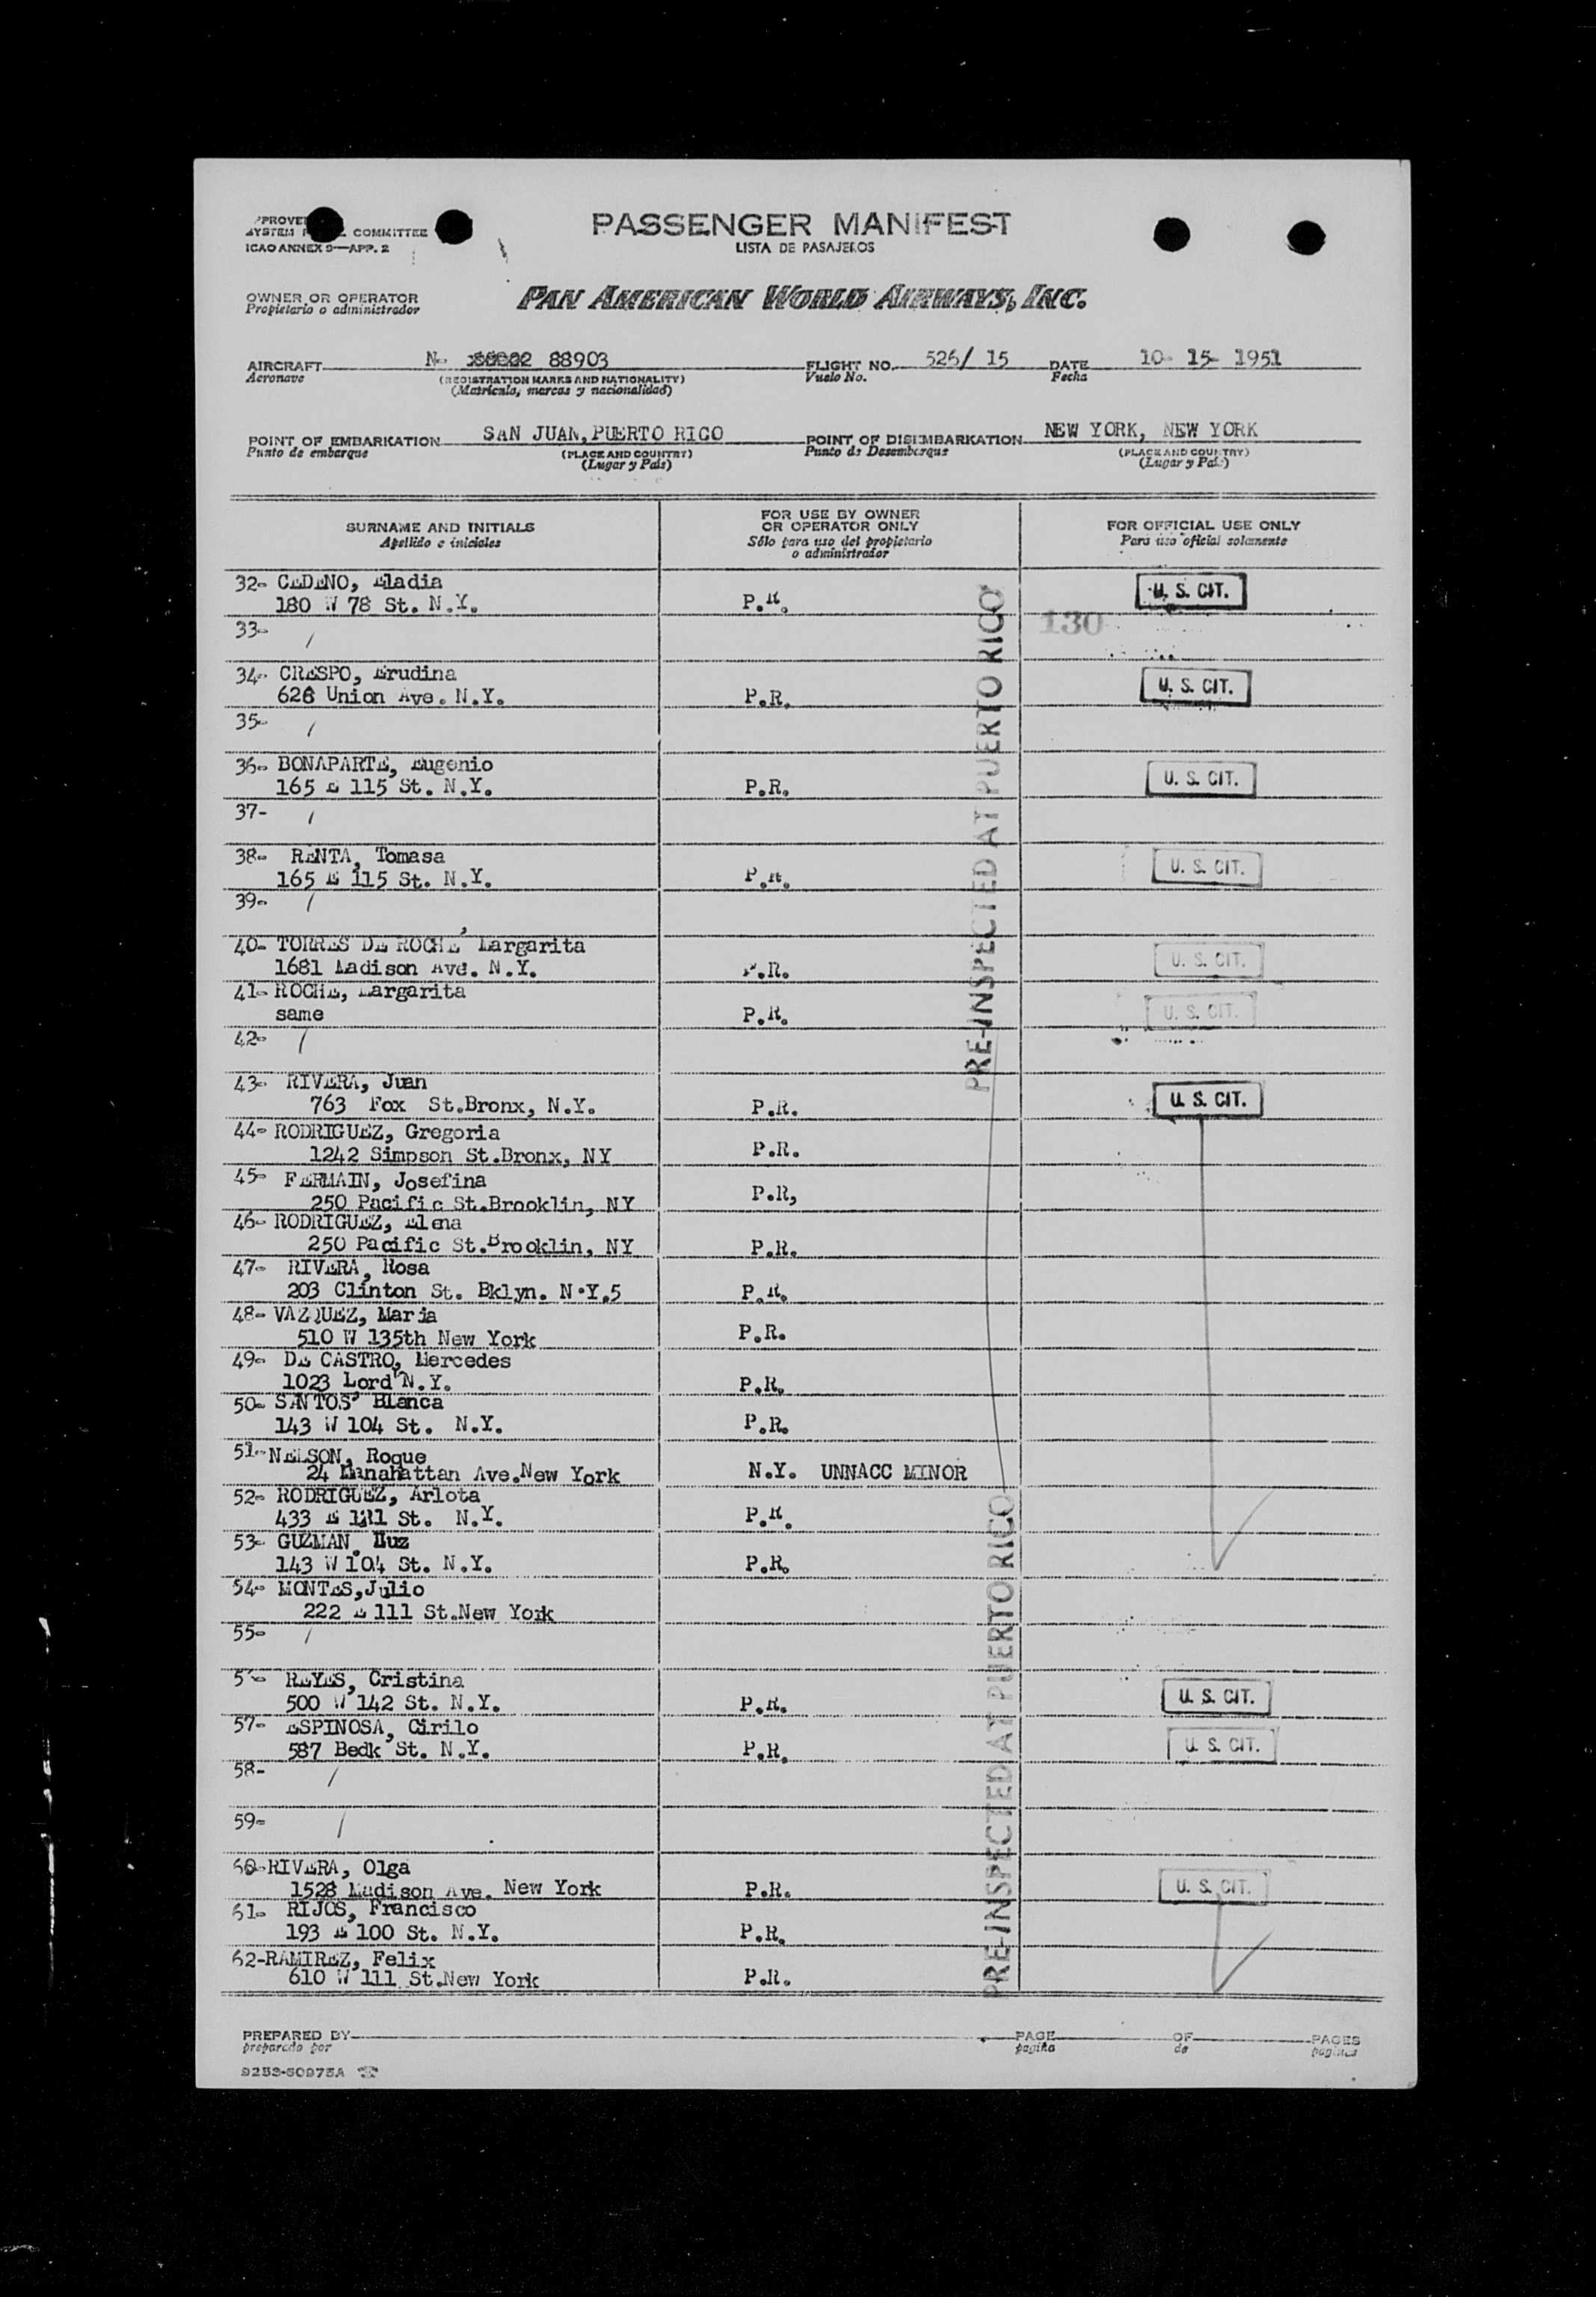 PASSENGER MANIFEST
LISTA DE PASAJEROS
COMMITTEE
ICAO ANNEX 9—APP. 2
OWNER OR OPERATOR
Propietario o administrador
PAN AMERICAN WORLD AIRWAYS, INC.
AIRCRAFT N- 88903 FLIGHT NO. 526/ 15 DATE 10- 15- 1951
Aeronave (REGISTRATION MARKS AND NATIONALITY) Vuelo No. Fecha
(Matrícula, marcas y nacionalidad)
POINT OF EMBARKATION SAN JUAN, PUERTO RICO POINT OF DISEMBARKATION NEW YORK, NEW YORK
Punto de embarque (PLACE AND COUNTRY) Punto de Desembarque (PLACE AND COUNTRY)
(Lugar y País) (Lugar y País)
SURNAME AND INITIALS FOR USE BY OWNER OR OPERATOR ONLY FOR OFFICIAL USE ONLY
Apellido e iniciales Sólo para uso del propietario o administrador Para uso oficial solamente
32- CEDENO, Eladia U. S. CIT.
180 W 78 St. N.Y. P.R.
33- / 130
34- CRESPO, Erudina U. S. CIT.
626 Union Ave. N.Y. P.R.
35- /
36- BONAPARTE, Eugenio U. S. CIT.
165 E 115 St. N.Y. P.R.
37- /
38- RENTA, Tomasa U. S. CIT.
165 E 115 St. N.Y. P.R.
39- /
40- TORRES DE ROCHE, Margarita U. S. CIT.
1681 Madison Ave. N.Y. P.R.
41- ROCHE, Margarita U. S. CIT.
same P.R.
42- /
43- RIVERA, Juan U. S. CIT.
763 Fox St.Bronx, N.Y. P.R.
44- RODRIGUEZ, Gregoria
1242 Simpson St.Bronx, NY P.R.
45- FERMAIN, Josefina
250 Pacific St.Brooklin, NY P.R,
46- RODRIGUEZ, Elena
250 Pacific St.Brooklin, NY P.R.
47- RIVERA, Rosa
203 Clinton St. Bklyn. N.Y.5 P.R.
48- VAZQUEZ, Maria
510 W 135th New York P.R.
49- DE CASTRO, Mercedes
1023 Lord N.Y. P.R.
50- SANTOS, Blanca
143 W 104 St. N.Y. P.R.
51- NELSON, Roque
24 Manahattan Ave.New York N.Y. UNNACC MINOR
52- RODRIGUEZ, Arlota
433 E St. N.Y. P.R.
53- GUZMAN, Luz
143 W 104 St. N.Y. P.R.
54- MONTES,Julio
222 E 111 St.New York
55- /
REYES, Cristina U. S. CIT.
500 W 142 St. N.Y. P.R.
57- ESPINOSA, Cirilo U. S. CIT.
587 Bedk St. N.Y. P.R.
58- /
59- /
60- RIVERA, Olga U. S. CIT.
1528 Madison Ave. New York P.R.
61- RIJOS, Francisco
193 E 100 St. N.Y. P.R.
62-RAMIREZ, Felix
610 W 111 St.New York P.R.
PRE-INSPECTED AT PUERTO RICO
PRE-INSPECTED AT PUERTO RICO
PREPARED BY PAGE OF PAGES
preparado por pagina de paginas
9253-50975A